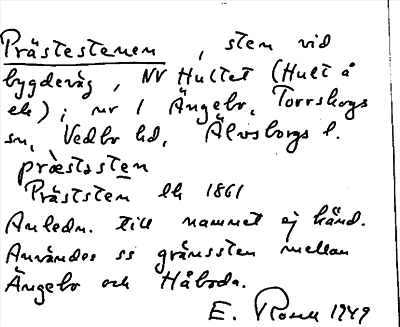 Prästestenen, sten vid
bygdeväg, NV Hultet (Hult å
ek); nr 1 Ängebo, Torrskogs
sn, Vedbo hd, Älvsborgs l.
præstəsten
Präststen ek 1861
Anledn. till namnet ej känd.
Användes ss gränssten mellan
Ängebo och Håbode.
E. 1949